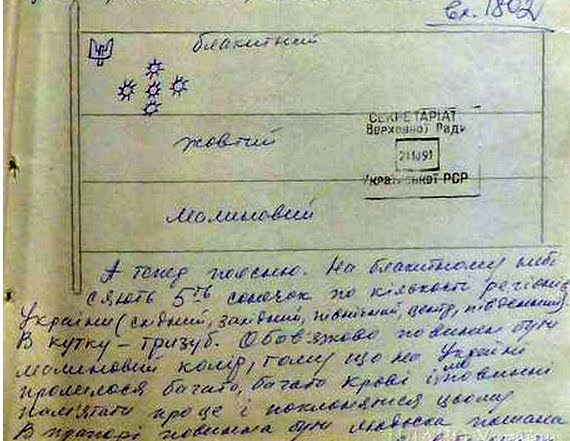 Вх. 1802
блакитний
СЕКРЕТАРІАТ
Верховної Ради
жовтий
Української РСР
малиновий
А тепер поясню. На блакитному небі
сяють 5ть сонечок по кількості регіонів
України (східний, західний, північний, центр, південний)
В кутку – тризуб. Обов'язково повинен бути
малиновий колір, тому що на Україні
пролилося багато, багато крові і ми повинні
пам'ятати про це і поклонятися цьому
В прапорі повинна бути людська пошана